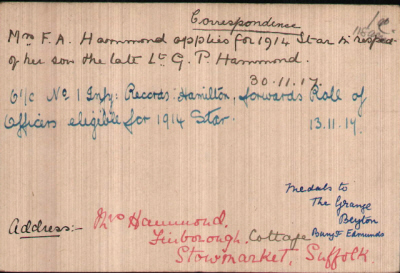 Correspondence
Mrs F.A. Hammond applies for 1914 Star in respect
of her son the late Lt G. P. Hammond.
30.11.17.
O i/c No 1 Infy: Records: Hamilton, forwards Roll of
Officers eligible for 1914 Star.
13.11.19.
Medals to
The Grange
Beyton
Bury St Edmunds
Address:- Mrs Hammond.
Finborough. Cottage
Stowmarket, Suffolk